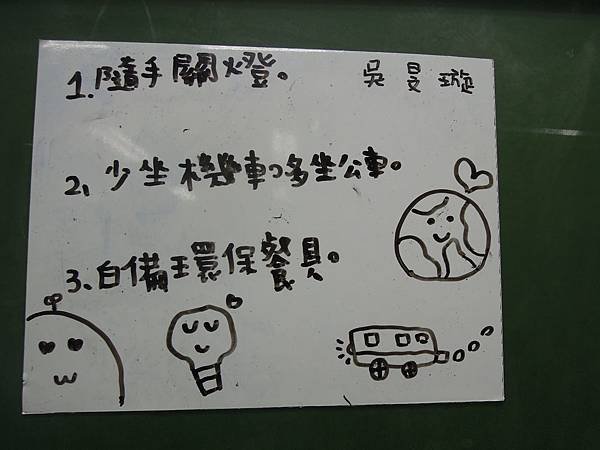 1.隨手關燈。 吳旻璇
2、少坐機車,多坐公車。
3、自備環保餐具。